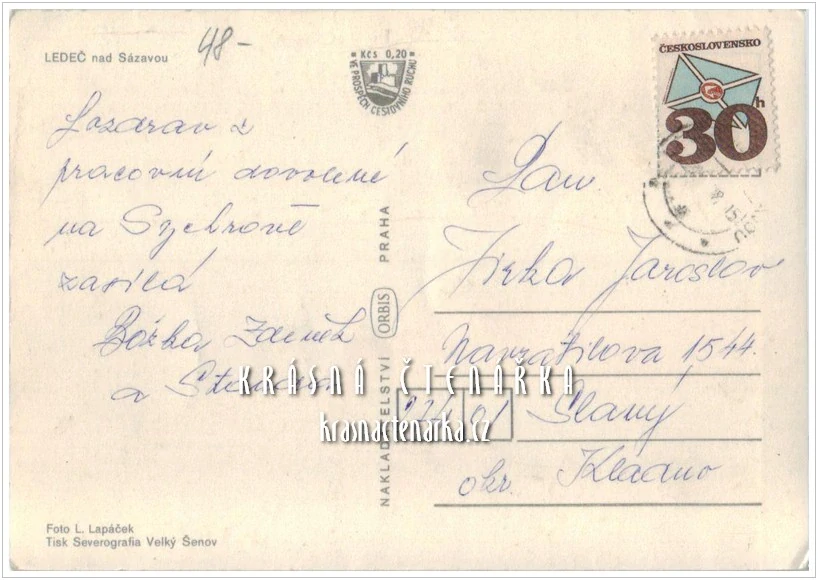 LEDEČ nad Sázavou
48-
Kčs 0,20
VE PROSPĚCH CESTOVNÍHO RUCHU
ČESKOSLOVENSKO
30h
Pozdrav z
pracovní dovolené
na Sychrově
zasílá
Božka Zdeněk
a Standa
NAKLADATELSTVÍ ORBIS PRAHA
Pan
Jirka Jaroslav
Navrátilova 1544
274 01 Slaný
okr. Kladno
KRÁSNÁ ČTENÁŘKA
krasnactenarka.cz
Foto L. Lapáček
Tisk Severografia Velký Šenov